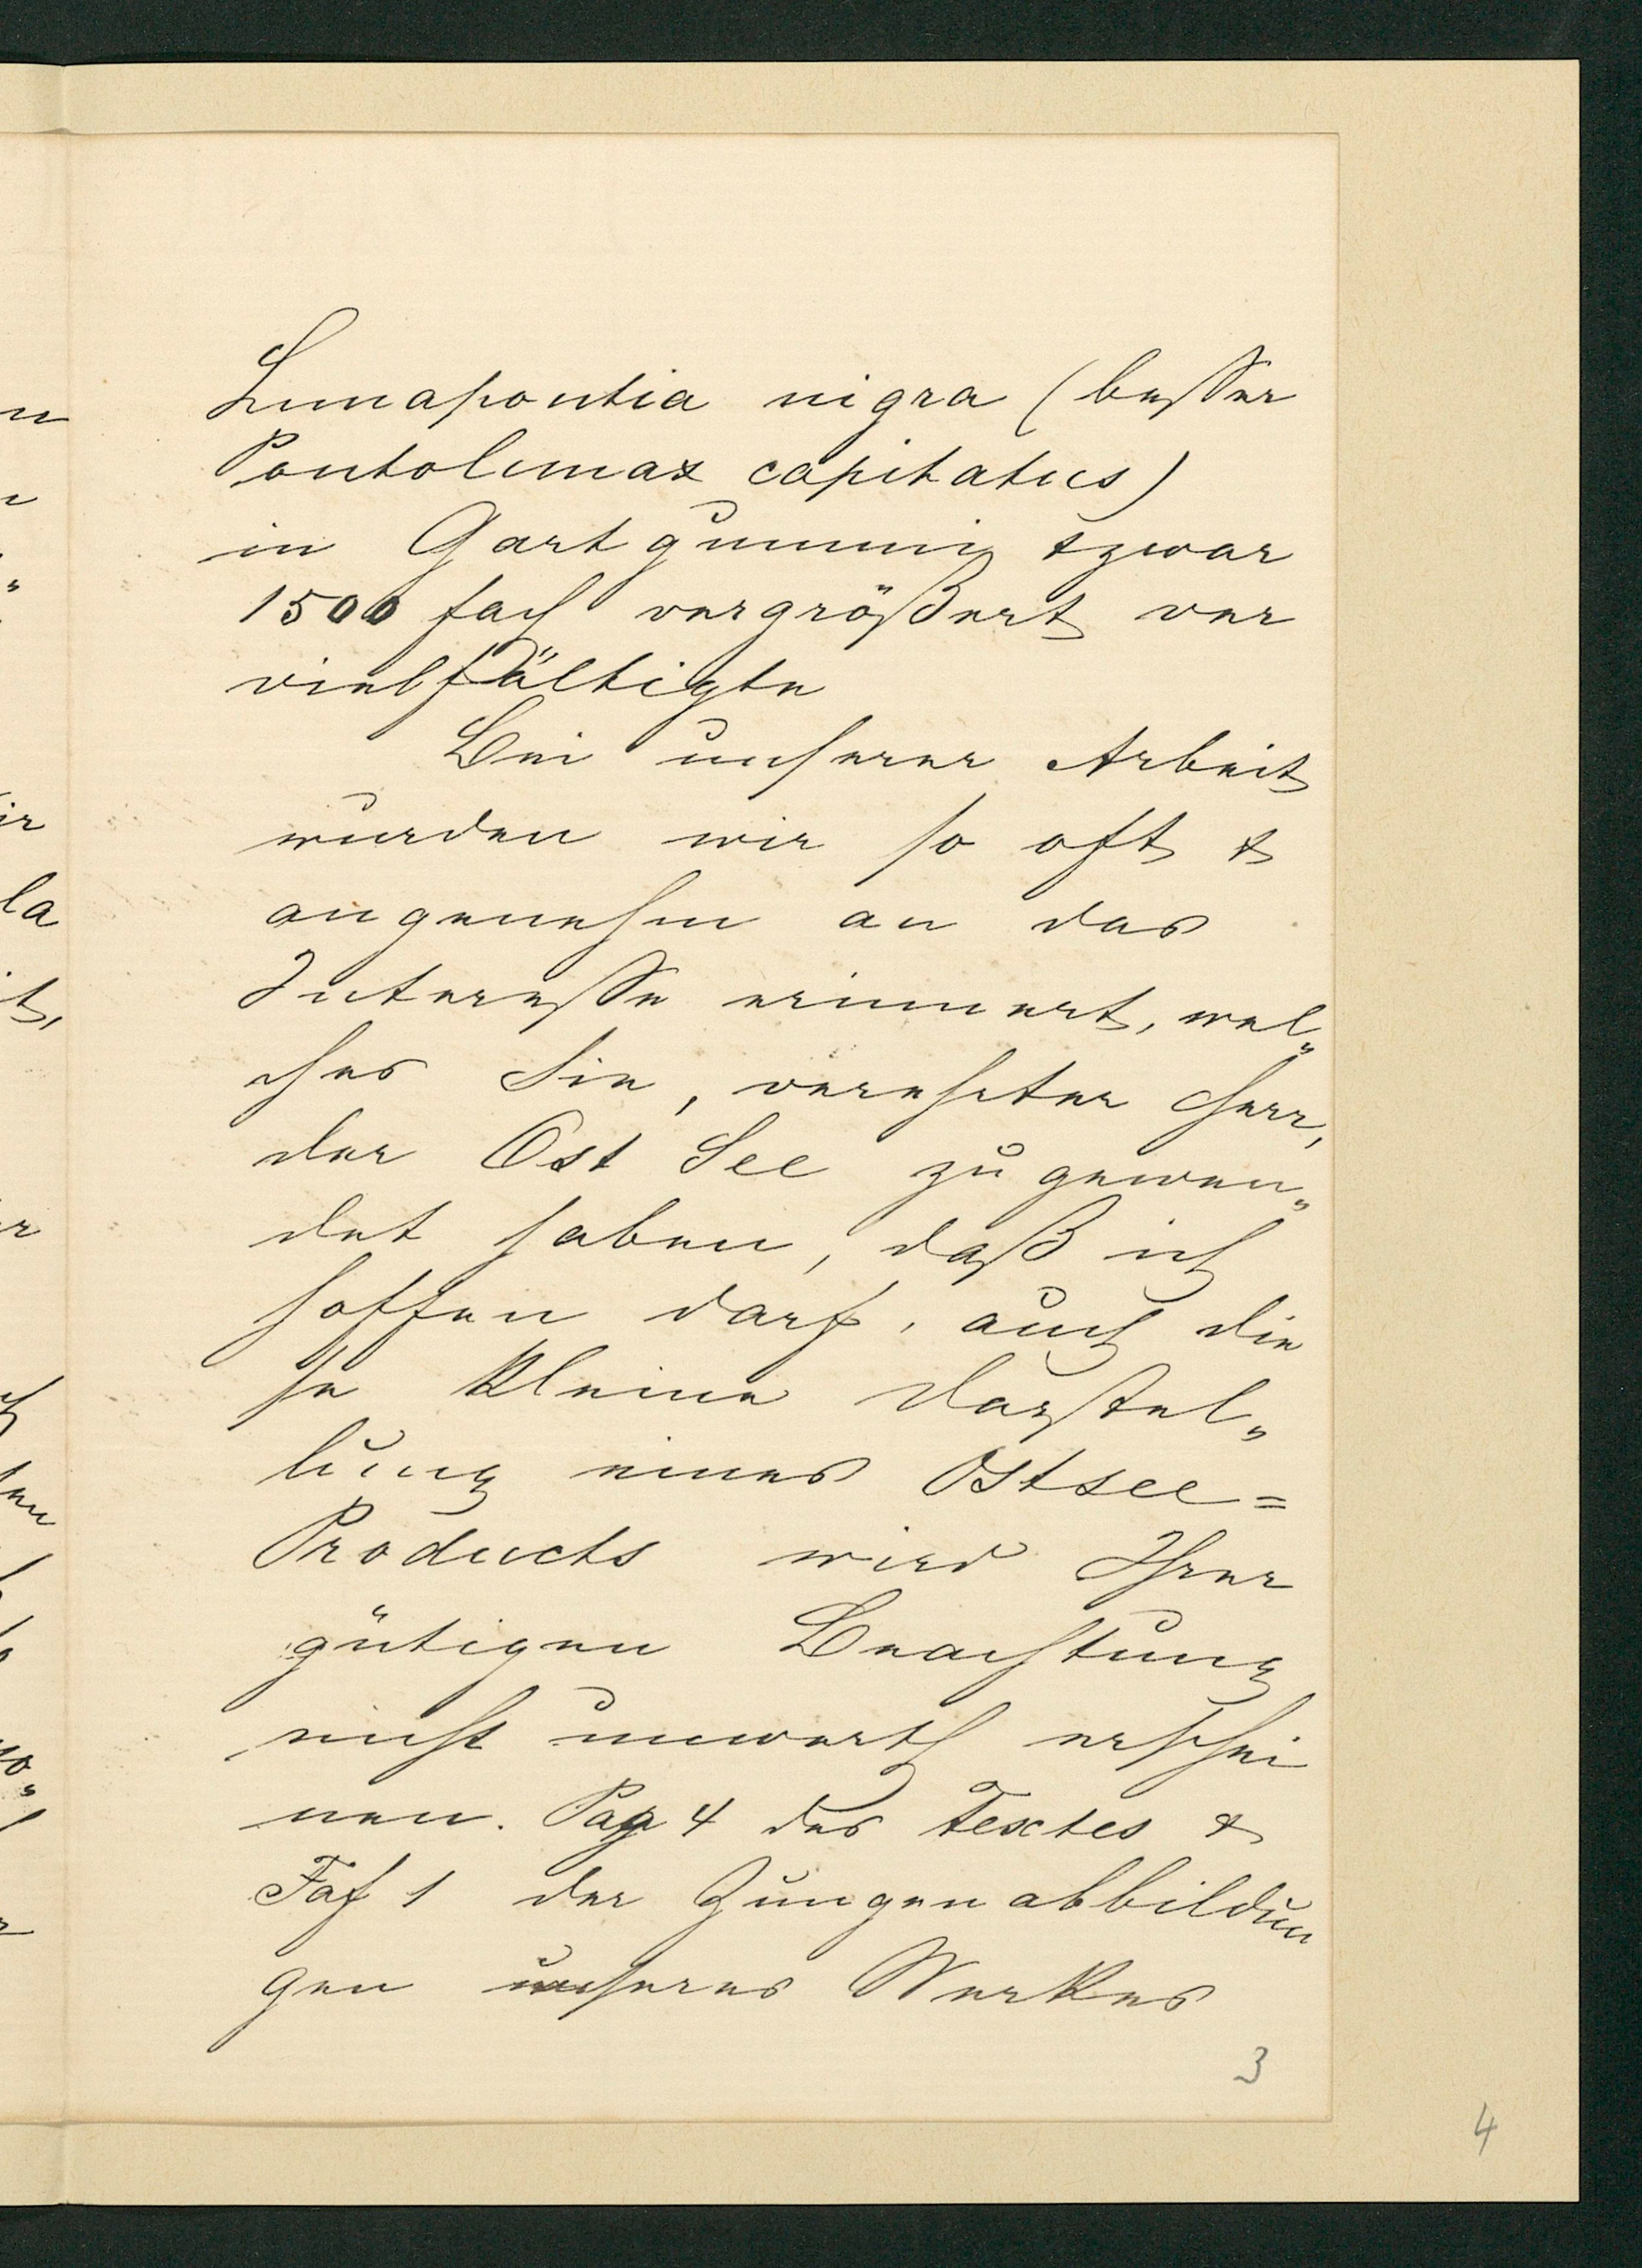 Limapontia nigra (besser
Pontolimax capitatus)
in Hartgummi & zwar
1500 fach vergrößert ver
vielfältigte
Bei unserer Arbeit
wurden wir so oft &
angenehm an das
Interesse erinnert, wel„
ches Sie, verehrter Herr,
der Ost See zu gewen„
det haben, daß ich
hoffen darf, auch die
se kleine Darstel„
lung eines Ostsee=
Products wird Ihrer
gütigen Beachtung
nicht unwerth erschei
nen. Pag 4 des Textes &
Taf 1 der Zungenabbildun
gen unseres Werkes
3
4